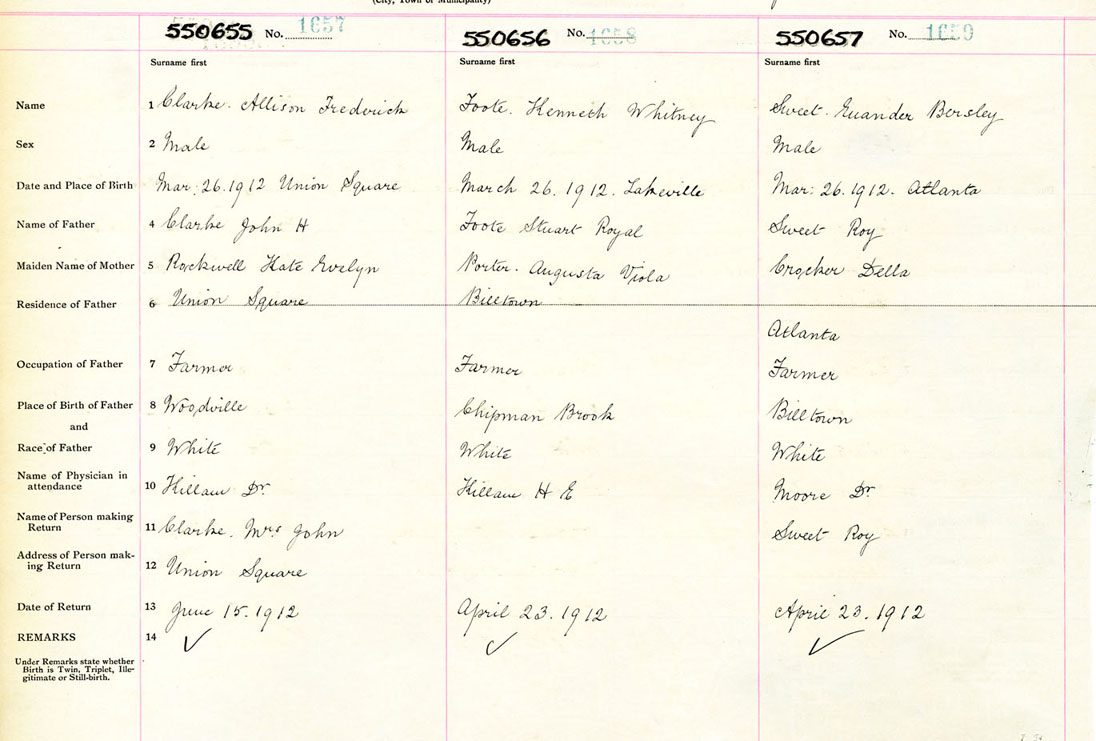 (City, Town or Municipality)
550655 No. 1657 550656 No. 1658 550657 No. 1659
Surname first Surname first Surname first
Name 1 Clarke. Allison Frederick Foote. Kenneth Whitney Sweet. Evander Bersley
Sex 2 Male Male Male
Date and Place of Birth Mar: 26. 1912 Union Square March 26. 1912. Lakeville Mar: 26. 1912. Atlanta
Name of Father 4 Clarke John H Foote Stuart Royal Sweet Roy
Maiden Name of Mother 5 Rockwell Kate Evelyn Porter. Augusta Viola Crocker Della
Residence of Father 6 Union Square Billtown
Atlanta
Occupation of Father 7 Farmer Farmer Farmer
Place of Birth of Father 8 Woodville Chipman Brook Billtown
and
Race of Father 9 White White White
Name of Physician in
attendance 10 Killam Dr Killam H E Moore Dr
Name of Person making
Return 11 Clarke. Mrs John Sweet Roy
Address of Person mak-
ing Return 12 Union Square
Date of Return 13 June 15. 1912 April 23. 1912 April 23. 1912
REMARKS 14 ✓ ✓ ✓
Under Remarks state whether
Birth is Twin, Triplet, Ille-
gitimate or Still-birth.